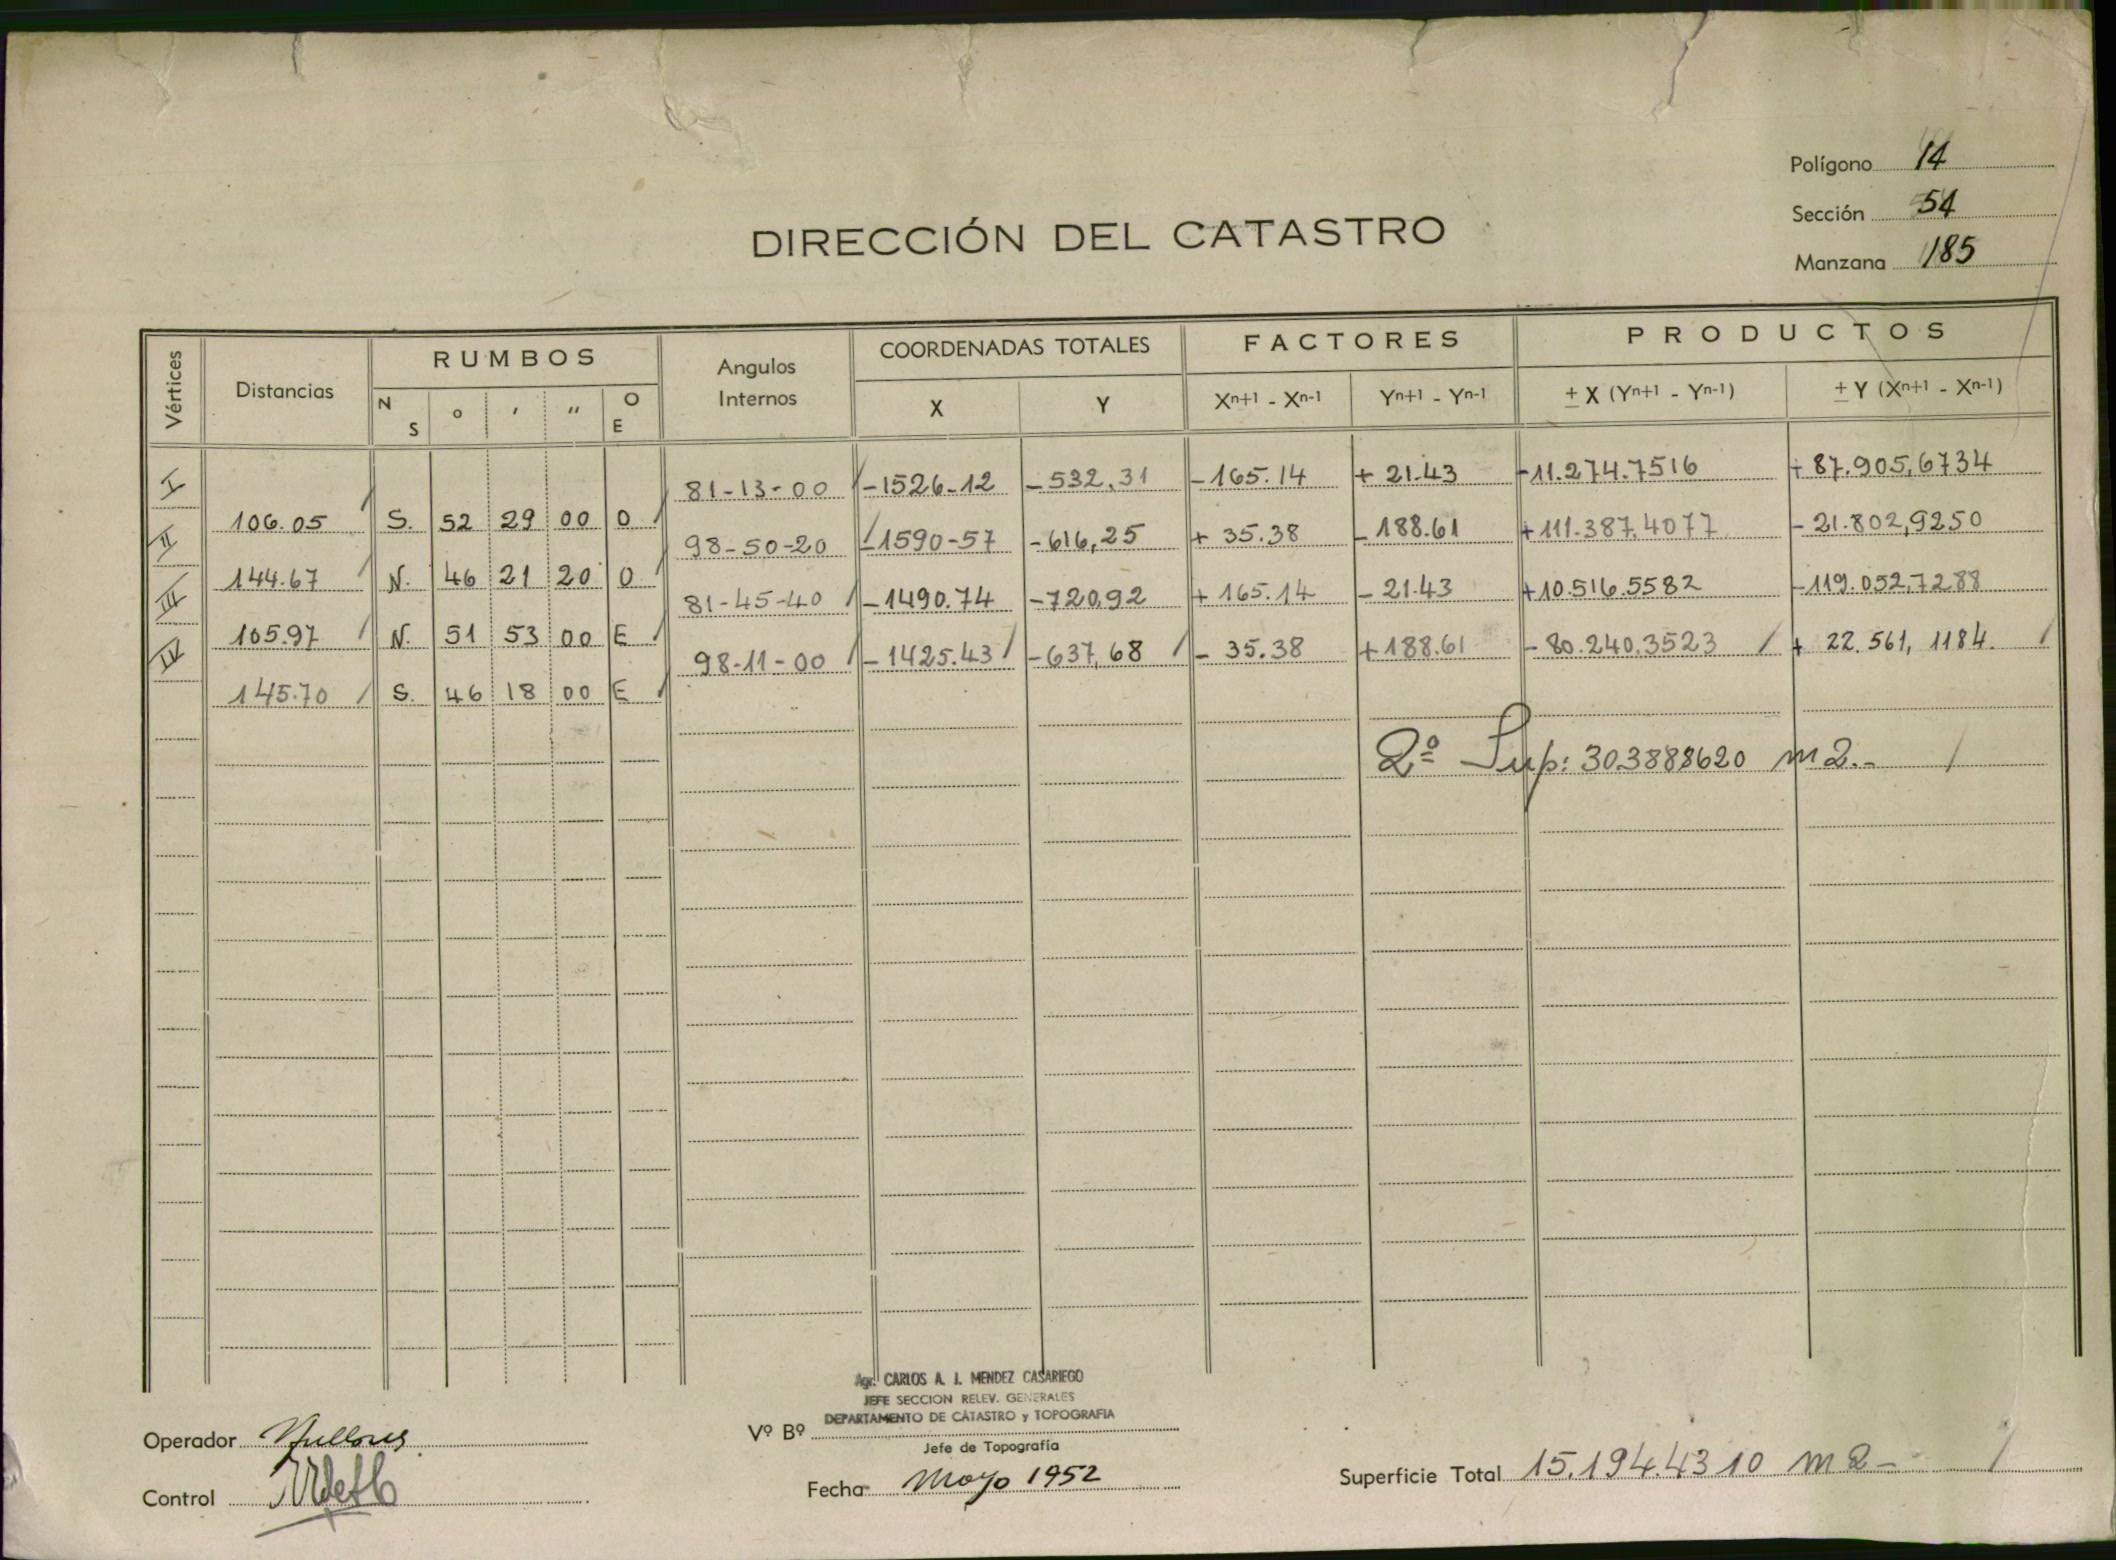 Polígono 14
Sección 54
Manzana 185
DIRECCIÓN DEL CATASTRO
Vértices Distancias RUMBOS Angulos Internos COORDENADAS TOTALES FACTORES PRODUCTOS
N S o ' " O E X Y Xn+1 - Xn-1 Yn+1 - Yn-1 ± X (Yn+1 - Yn-1) ± Y (Xn+1 - Xn-1)
I 81-13-00 -1526-12 -532,31 -165.14 + 21.43 -11.274.7516 + 87.905,6734
106.05 S. 52 29 00 O
II 98-50-20 -1590-57 -616,25 + 35.38 - 188.61 +111.387.4077 - 21.802,9250
144.67 N. 46 21 20 O
III 81-45-40 -1490.74 -720,92 + 165.14 - 21.43 +10.516.5582 -119.052,7288
105.97 N. 51 53 00 E
IV 98-11-00 -1425.43 -637,68 - 35.38 +188.61 - 80.240.3523 + 22.561,1184.
145.70 S. 46 18 00 E
2º Sup: 30.3888620 m2.-
Agr. CARLOS A. J. MENDEZ CASARIEGO
JEFE SECCION RELEV. GENERALES
DEPARTAMENTO DE CATASTRO y TOPOGRAFIA
Operador
Vº Bº
Jefe de Topografía
Control
Fecha Mayo 1952
Superficie Total 15.194.4310 m2-